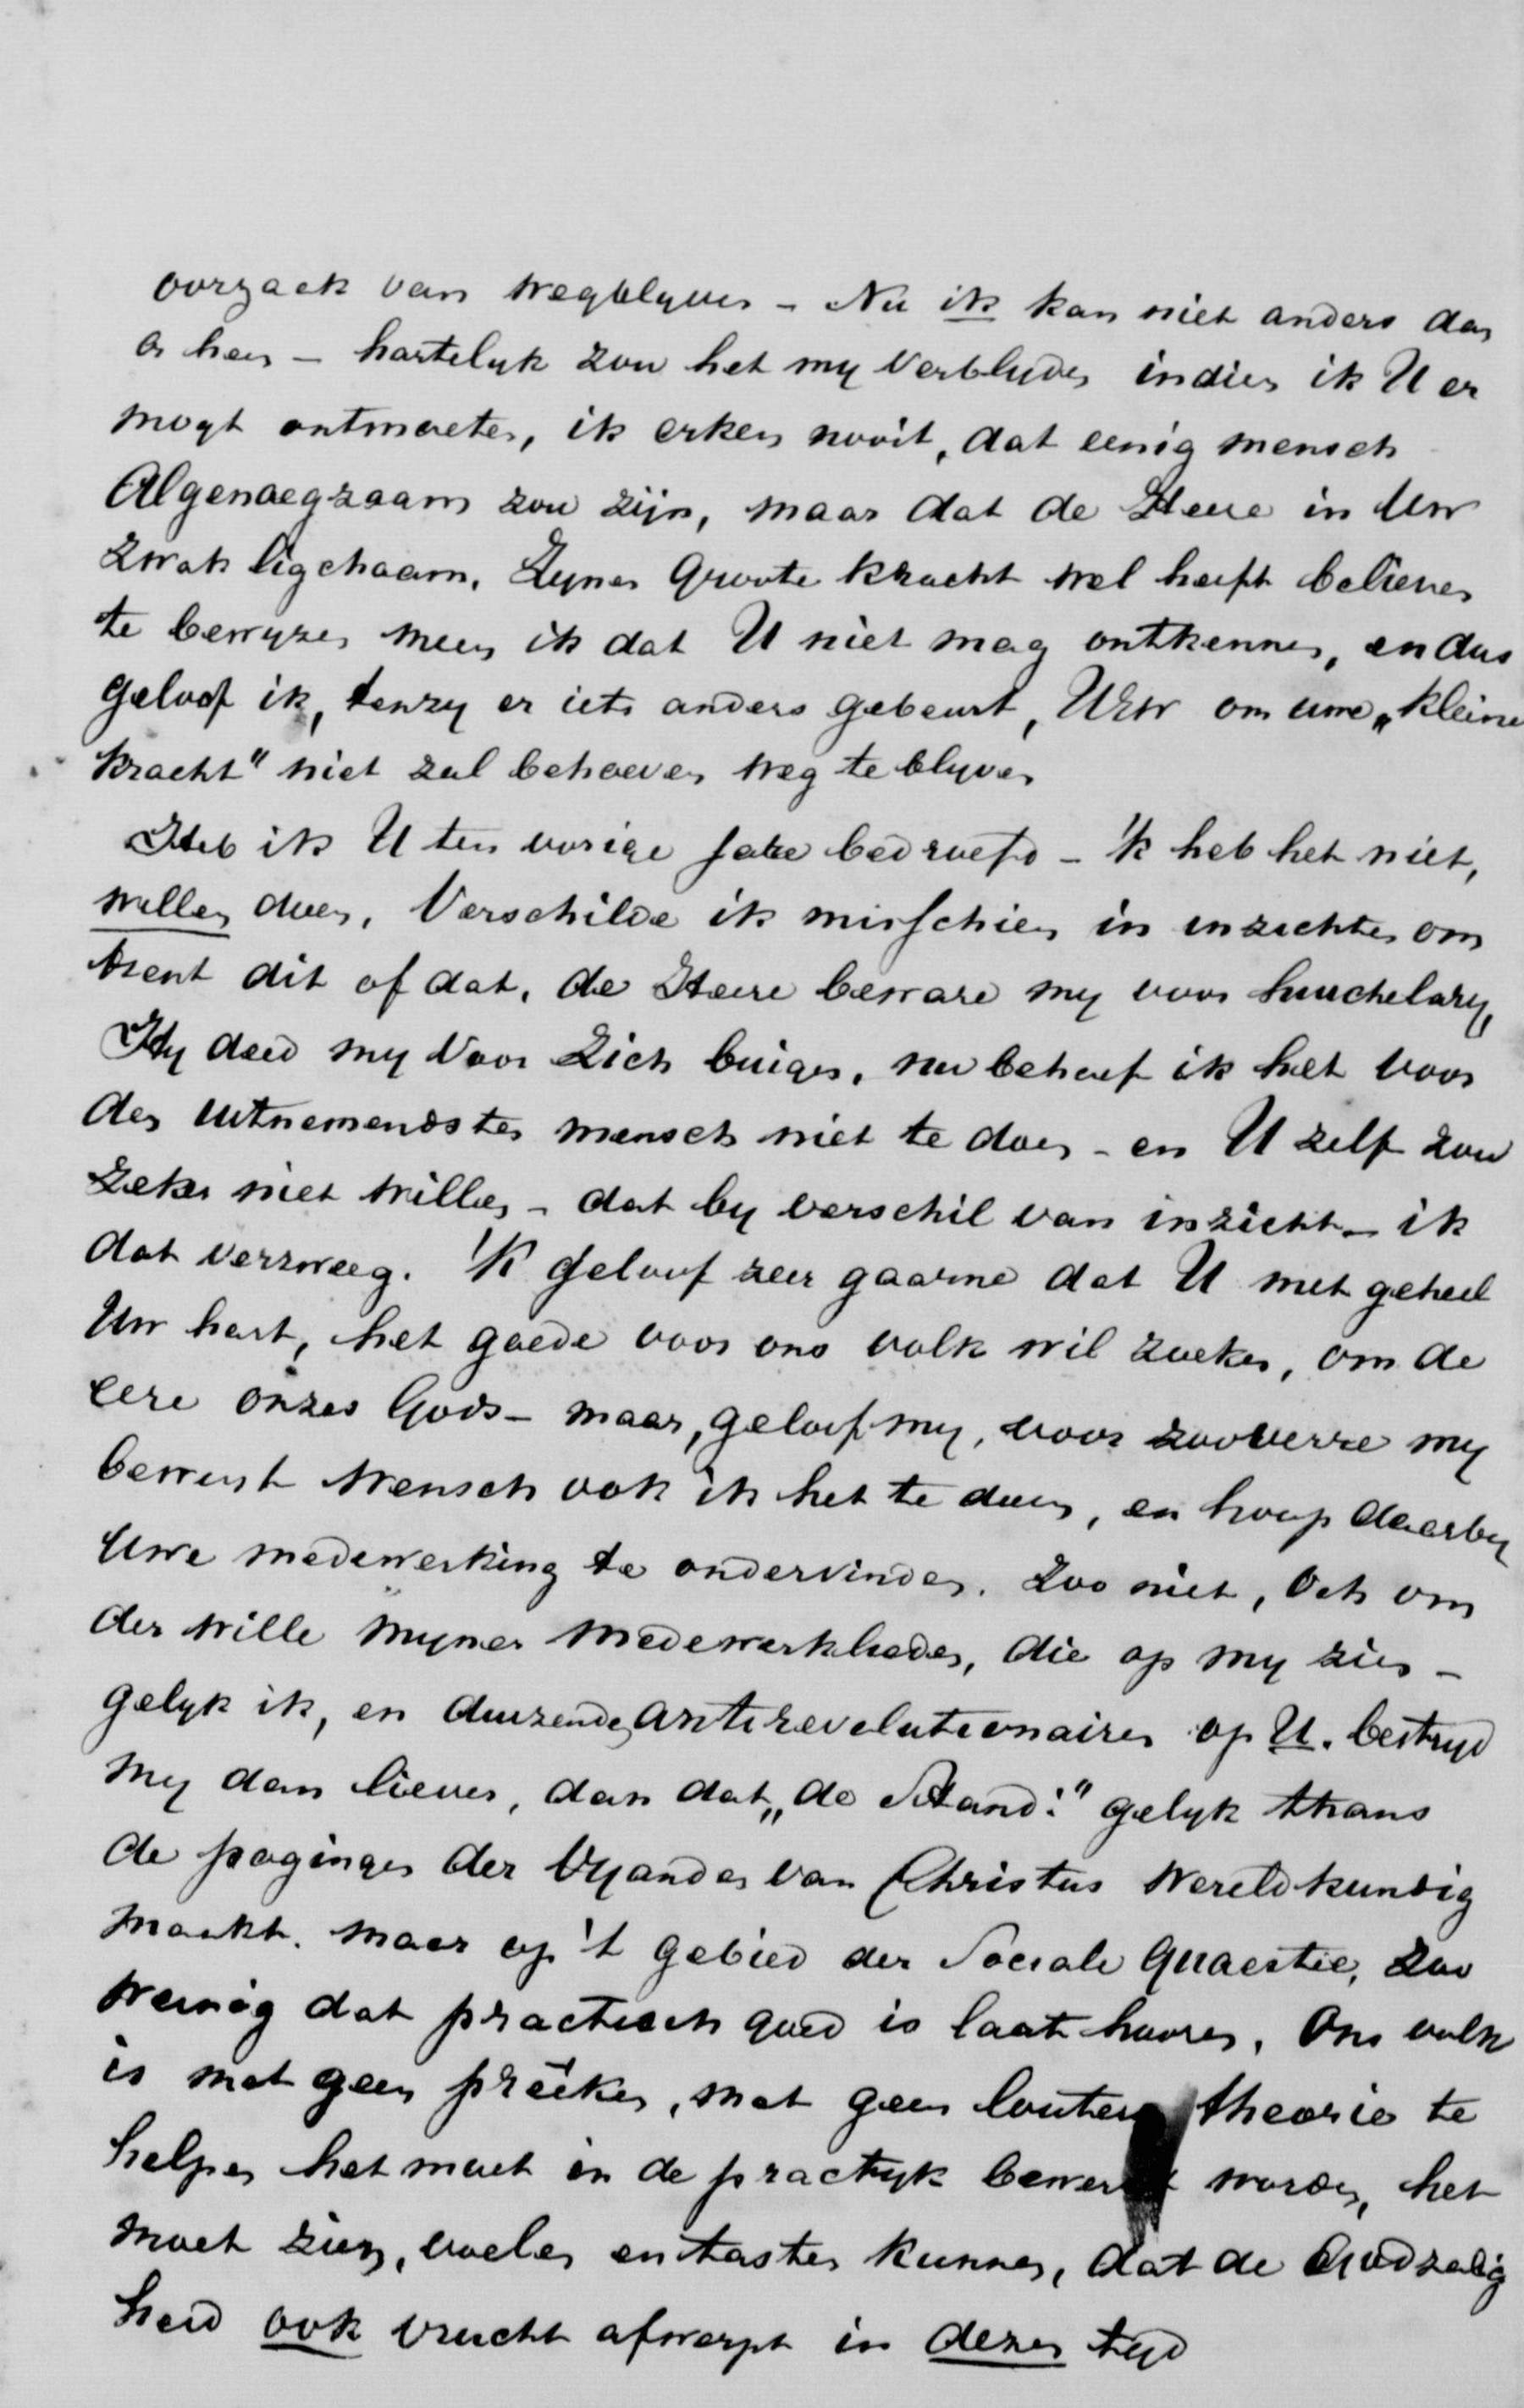 oorzaak van wegblyven – Nu ik kan niet anders dan
er hen – hartelyk zou het my verblyden indien ik U er
mogt ontmoeten, ik erken nooit, dat eenig mensch
Algenoegzaam zou zijn, maar dat de Heere in Uw
zwak ligchaam, Zynen Groote kracht wel heeft believen
te bewyzen meen ik dat U niet mag ontkennen, en dus
geloof ik, tenzy er iets anders gebeurt, UEW om uwe „kleine
kracht" niet zal behoeven weg te blyven
Heb ik U ten vorige jare bedroefd – 'k heb het niet,
willen doen, Verschilde ik misschien in inzichten om
trent dit of dat, de Heere beware my voor huichelary,
Hy deed my Voor Zich buigen, nu behoef ik het voor
den uitnemendsten mensch niet te doen – en U zelf zou
zeker niet willen – dat by verschil van inzicht – ik
dat verzweeg. 'K geloof zeer gaarne dat U met geheel
Uw hart, het goede voor ons volk wil zoeken, om de
eere onzes Gods – maar, geloof my, voor zooverre my
bewust wensch ook ik het te doen, en hoop daarby
Uwe medewerking te ondervinden. Zoo niet, Och om
der wille myner medewerkheden, die op my zien –
gelyk ik, en duizenden antirevolutionairen op U. bestryd
my dan liever, dan dat „de Stand:" gelyk thans
de pogingen der Vyanden van Christus wereldkundig
maakt. maar op 't gebied der Sociale Quaestie, zoo
weinig dat practisch goed is laat hooren. Ons volk
is met geen preêken, met geen loutere theorie te
helpen het moet in de practyk bewerkt worden, het
moet zien, voelen en tasten kunnen, dat de Godzalig
heid ook vrucht afwerpt in dezen tyd